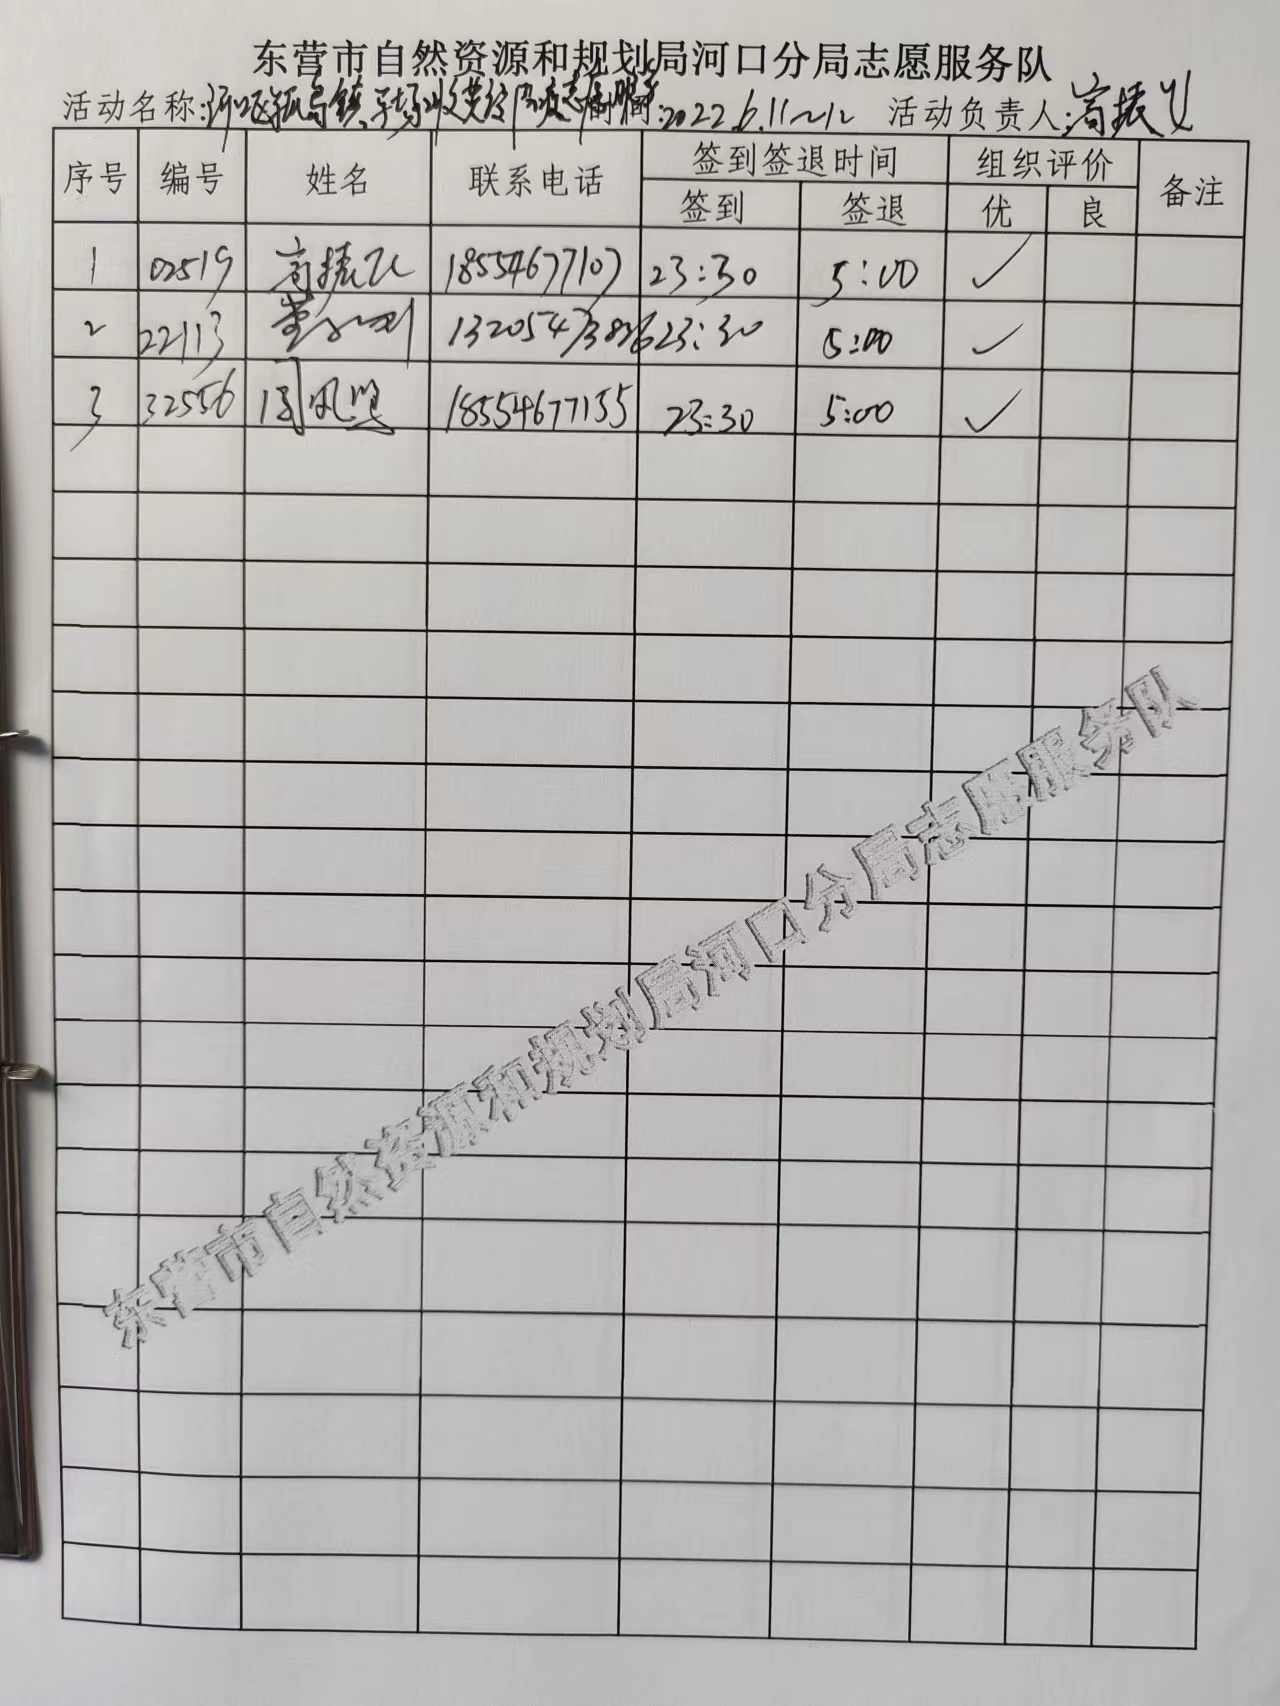 东营市自然资源和规划局河口分局志愿服务队
活动名称: 孤岛镇 时间:2022.6.11~12 活动负责人:高振飞
序号 编号 姓名 联系电话 签到签退时间 组织评价 备注
签到 签退 优 良
1 02519 高振飞 18554677107 23:30 5:00 ✓
2 22113 23:30 5:00 ✓
3 32556 周风 18554677155 23:30 5:00 ✓
东营市自然资源和规划局河口分局志愿服务队